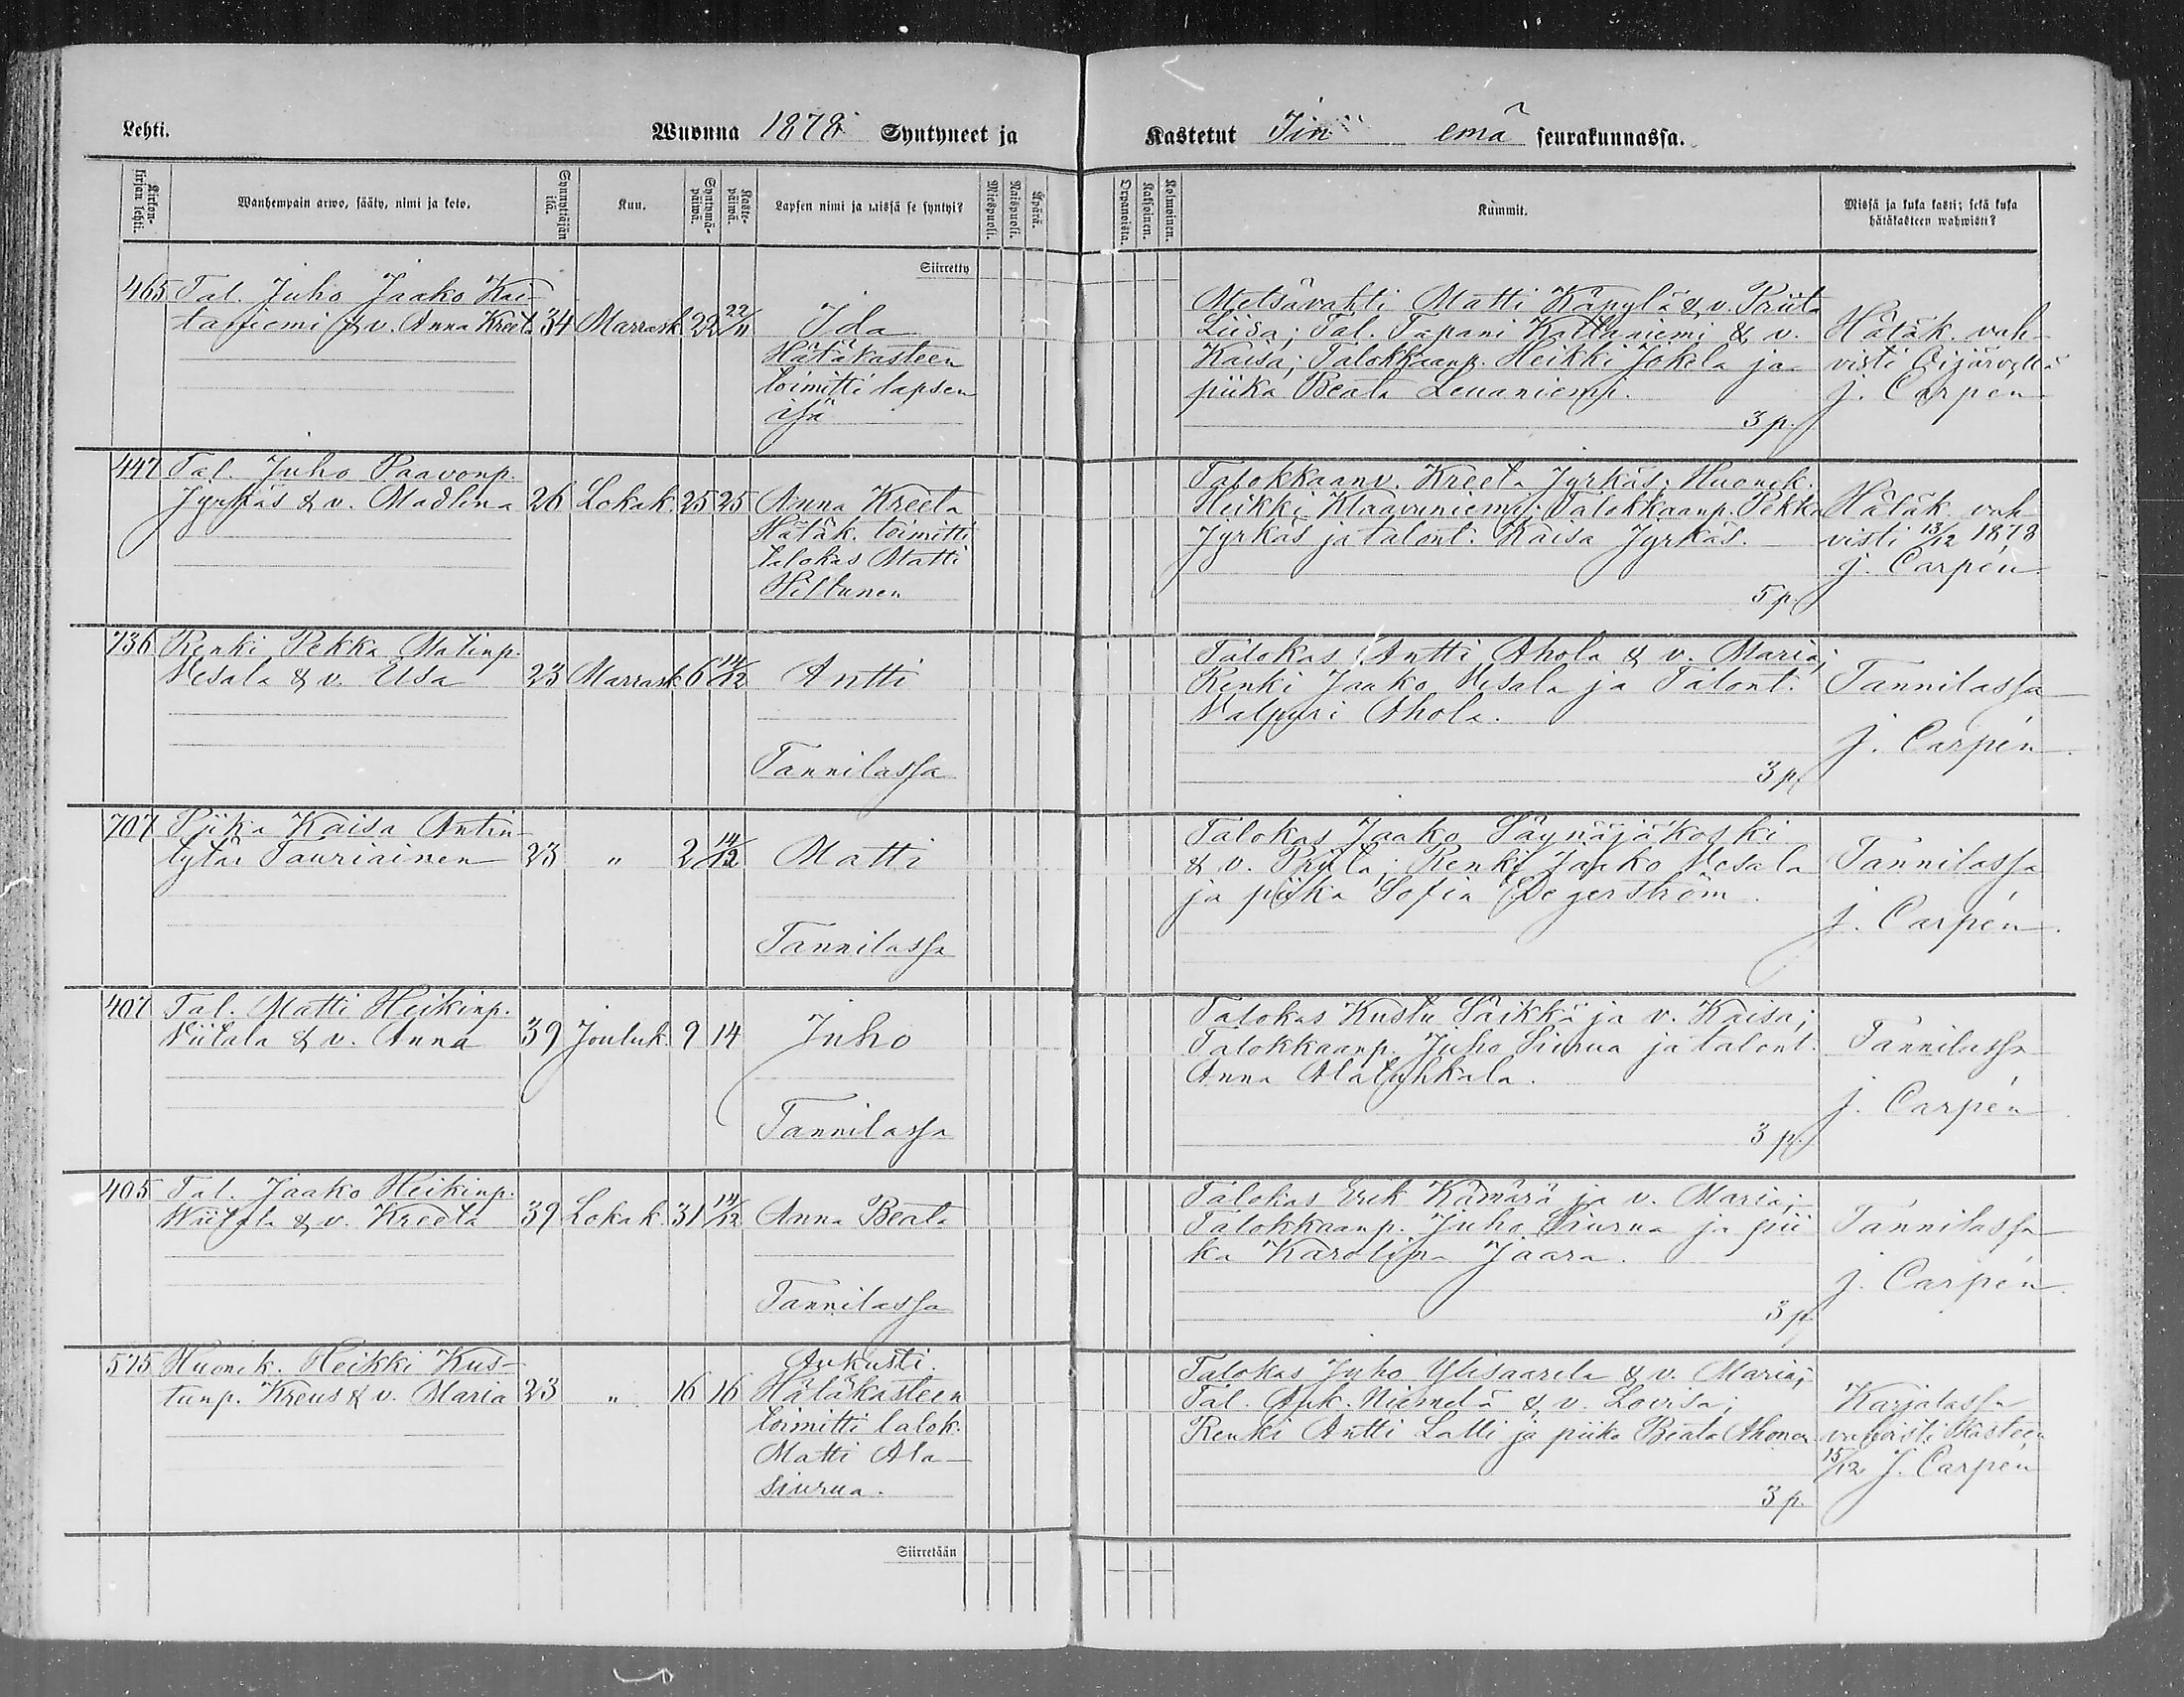 Lehti.
Wuonna 1878 Syntyneet ja
Kastetut Iin emä seurakunnassa.
Kirkon-
kirjan lehti.
Wanhempain arwo, sääty, nimi ja koto.
Synnyttäjän
ikä.
Kuu.
Syntymä-
päiwä.
Kaste-
päiwä.
Lapsen nimi ja missä se syntyi?
Miespuoli.
Naispuoli.
Äpärä.
Orpanoista.
Kaksoinen.
Kolmoinen.
Kummit.
Missä ja kuka kasti; sekä kuka
hätäkasteen wahwisti?
Siirretty
465 Tal. Juho Jaako Kai-
taniemi & v. Anna Kreeta 34 Marrask. 22 22/11 Ida
Hätäkasteen
toimitti lapsen
isä
Metsävahti Matti Käpylä & v. Priita
Liisa; Tal. Tapani Kallaniemi & v.
Kaisa; Talokkaanp. Heikki Jokela ja
piika Beata Leuaniemi.
3 p.
Hätäk. vah-
visti Oijärvellä
J. Carpén
447 Tal. Juho Paavonp.
Jyrkäs & v. Madlena 26 Lokak. 25 25 Anna Kreeta
Hätäk. toimitti
talokas Matti
Hiltunen
Talokkaanv. Kreeta Jyrkäs; Huonek.
Heikki Klaavuniemi; Talokkaanp. Pekka
Jyrkäs ja talont. Kaisa Jyrkäs.
5 p.
Hätäk. vah
visti 13/12 1878
J. Carpén
736 Renki Pekka Matinp.
Vesala & v. Elsa 23 Marrask. 6 14/12 Antti
Tannilassa
Talokas Antti Ahola & v. Maria;
Renki Jaako Vesala ja Talont.
Valpuri Ahola.
3 p.
Tannilassa
J. Carpén.
707 Piika Kaisa Antin-
tytär Tauriainen 23 " 2 14/12 Matti
Tannilassa
Talokas Jaako Säynäjäkoski
& v. Priita; Renki Jaako Vesala
ja piika Sofia Degerström.
Tannilassa
J. Carpén.
407 Tal. Matti Heikinp.
Viitala & v. Anna 39 Jouluk. 9 14 Juho
Tannilassa
Talokas Kustu Säikkä ja v. Kaisa;
Talokkaanp. Juho Siurua ja talont.
Anna Alatyhkala.
3 p.
Tannilassa
J. Carpén.
405 Tal. Jaako Heikinp.
Wiitala & v. Kreeta 39 Lokak. 31 14/12 Anna Beata
Tannilassa
Talokas Erik Kämärä ja v. Maria;
Talokkaanp. Juho Siurua ja pii
ka Karolina Jaara.
3 p.
Tannilassa
J. Carpén.
575 Huonek. Heikki Kus-
tunp. Kreus & v. Maria 23 " 16 16 Aukusti.
Hätäkasteen
toimitti talok.
Matti Ala-
siurua.
Talokas Juho Ylisaarela & v. Maria;
Tal. Auk. Niemelä & v. Lovisa;
Renki Antti Latti ja piika Beata Ahonen
3 p.
Karjalassa
vahvisti kasteen
15/12 J. Carpén
Siirretään